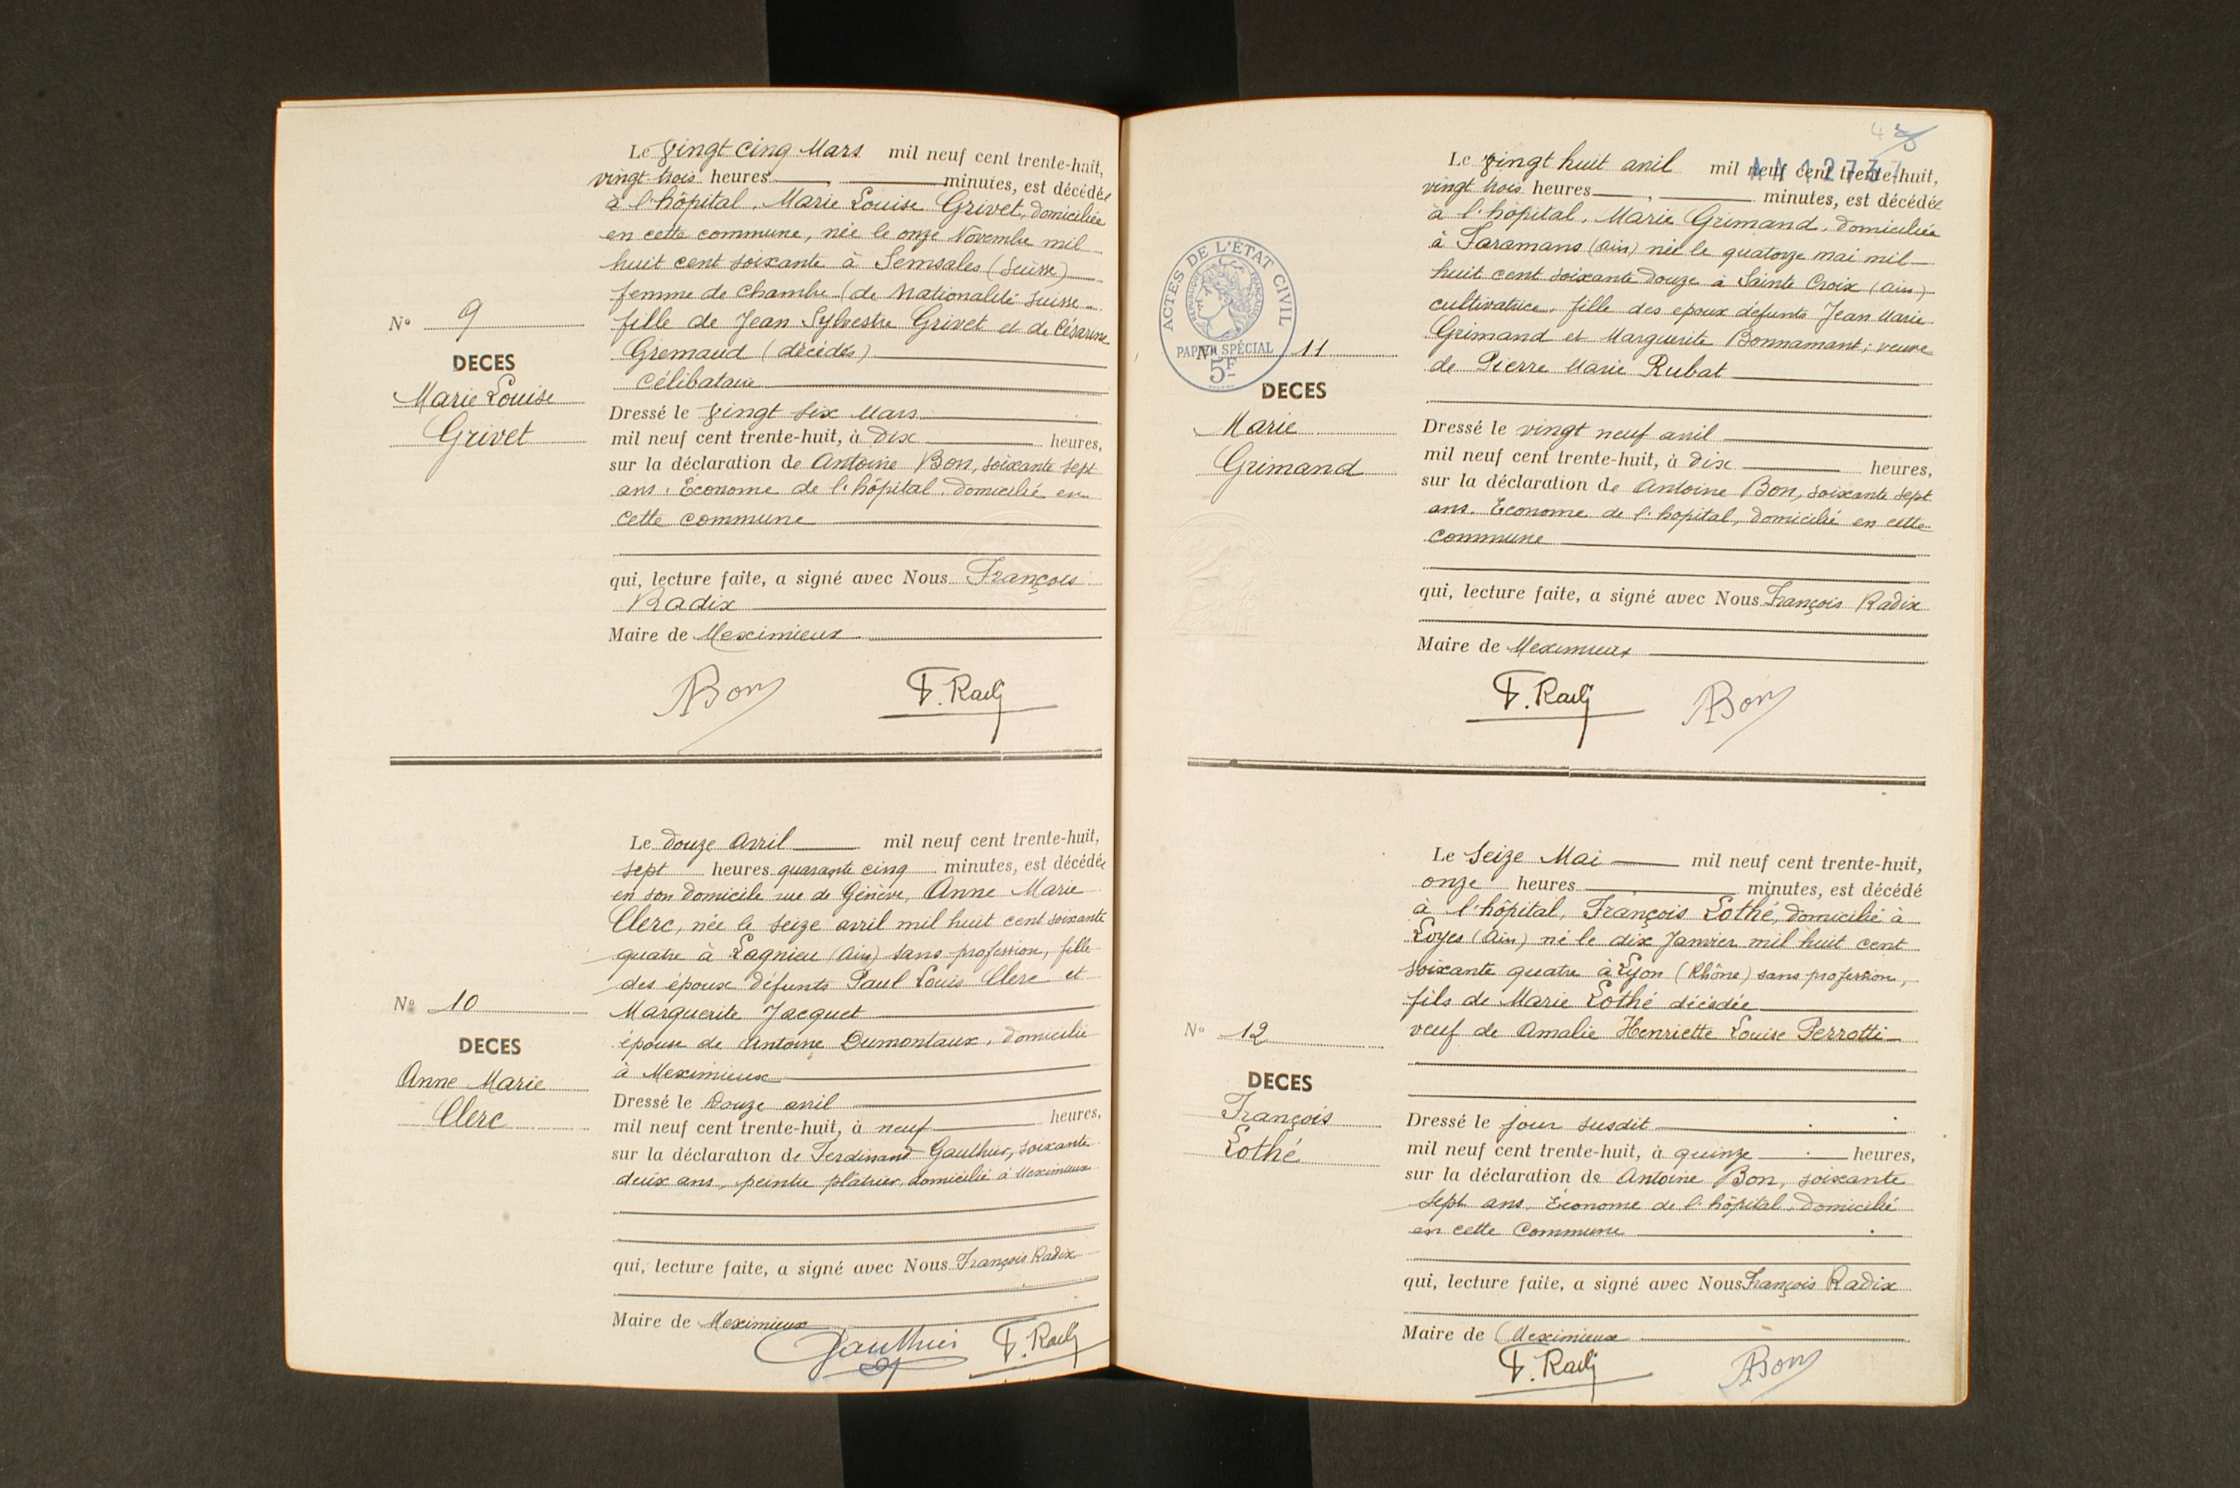 Le Vingt cinq Mars mil neuf cent trente-huit,
vingt trois heures minutes, est décédée
à l'hôpital, Marie Louise Grivet, domiciliée
en cette commune, née le onze Novembre mil
huit cent soixante à Semsales (Suisse)
femme de chambre (de Nationalité suisse
fille de Jean Sylvestre Grivet et de Césarine
Gremaud (décédés)
célibataire
N° 9
DECES
Marie Louise
Grivet
Dressé le Vingt six Mars
mil neuf cent trente-huit, à dix heures,
sur la déclaration de Antoine Bon, soixante sept
ans. Économe de l'hôpital, domicilié en
cette commune
qui, lecture faite, a signé avec Nous François
Radix
Maire de Meximieux
ABon F. Radix
Le douze Avril mil neuf cent trente-huit,
sept heures quarante cinq minutes, est décédée
en son domicile rue de Genève, Anne Marie
Clerc, née le seize avril mil huit cent soixante
quatre à Lagnieu (Ain) sans profession, fille
des époux défunts Paul Louis Clerc et
Marguerite Jacquet
épouse de Antoine Dumontaux, domicilié
à Meximieux
N° 10
DECES
Anne Marie
Clerc
Dressé le Douze avril
mil neuf cent trente-huit, à neuf heures,
sur la déclaration de Ferdinand Gauthier, soixante
deux ans, peintre plâtrier, domicilié à Meximieux
qui, lecture faite, a signé avec Nous François Radix
Maire de Meximieux
Gauthier F. Radix
Le Vingt huit avril mil neuf cent trente-huit,
vingt trois heures minutes, est décédée
à l'hôpital, Marie Grimand, domiciliée
à Faramans (Ain) née le quatorze mai mil
huit cent soixante douze à Sainte Croix (Ain)
cultivatrice, fille des époux défunts Jean Marie
Grimand et Marguerite Bonnamant; veuve
de Pierre Marie Rubat
ACTES DE L'ÉTAT CIVIL
PAPIER SPÉCIAL
5F
N° 11
DECES
Marie
Grimand
Dressé le vingt neuf avril
mil neuf cent trente-huit, à dix heures,
sur la déclaration de Antoine Bon, soixante sept
ans. Économe de l'hôpital, domicilié en cette
commune
qui, lecture faite, a signé avec Nous François Radix
Maire de Meximieux
F. Radix ABon
Le Seize Mai mil neuf cent trente-huit,
onze heures minutes, est décédé
à l'hôpital, François Lothé, domicilié à
Loyes (Ain) né le dix Janvier mil huit cent
soixante quatre à Lyon (Rhône) sans profession,
fils de Marie Lothé décédée
veuf de Amalie Henriette Louise Perrotti
N° 12
DECES
François
Lothé
Dressé le jour susdit
mil neuf cent trente-huit, à quinze heures,
sur la déclaration de Antoine Bon, soixante
sept ans. Économe de l'hôpital, domicilié
en cette Commune
qui, lecture faite, a signé avec Nous François Radix
Maire de Meximieux
F. Radix ABon